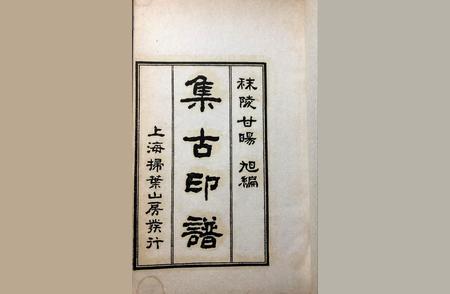 秣陵甘暘旭編
集古印譜
上海掃葉山房發行